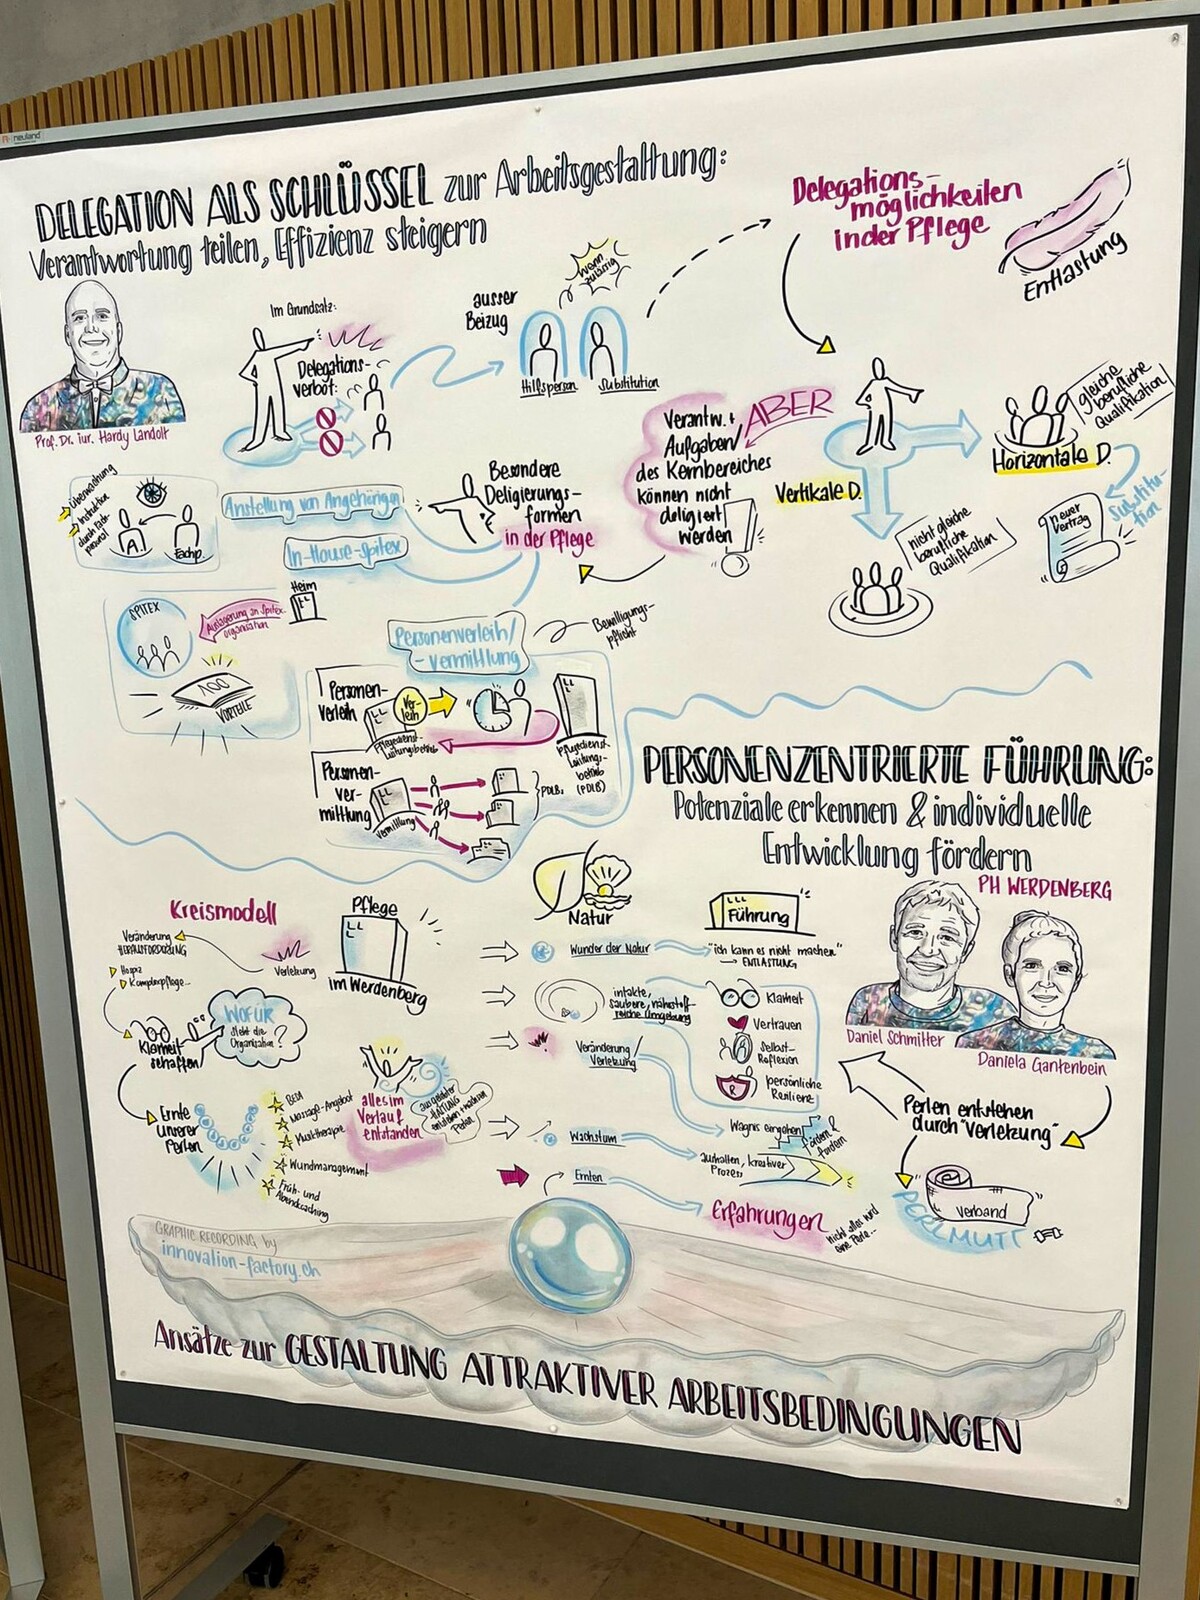 neuland
DELEGATION ALS SCHLÜSSEL zur Arbeitsgestaltung:
Verantwortung teilen, Effizienz steigern
Prof. Dr. iur. Hardy Landolt
Im Grundsatz:
Delegations-
verbot:
ausser
Beizug
wenn
zulässig
Hilfsperson
Substitution
Delegations-
möglichkeiten
in der Pflege
Entlastung
Verantw. +
Aufgaben
des Kernbereiches
können nicht
deligiert
werden
ABER
Vertikale D.
Horizontale D.
gleiche
berufliche
Qualifikation
Substitu-
tion
neuer
Vertrag
nicht gleiche
berufliche
Qualifikation
Besondere
Deligierungs-
formen
in der Pflege
Anstellung von Angehörigen
Überwachung
Instruktion
durch Fach-
personal
A.
Fachp.
In-House-Spitex
Heim
SPITEX
Auslagerung an Spitex-
organisation
100
VORTEILE
Personenverleih/
-vermittlung
Bewilligungs-
pflicht
Personen-
verleih
Ver-
leih
Pflegedienst-
leistungsbetrieb
Pflegedienst-
leistungs-
betrieb
(PDLB)
Personen-
ver-
mittlung
Vermittlung
PDLB.
PERSONENZENTRIERTE FÜHRUNG:
Potenziale erkennen & individuelle
Entwicklung fördern
PH WERDENBERG
Daniel Schmitter
Daniela Gantenbein
Perlen entstehen
durch "Verletzung"
Verband
PERLMUTT
Kreismodell
Veränderung
HERAUSFORDERUNG
Verletzung
Hospiz
Komplexpflege...
Klarheit
schaffen
WOFÜR
steht die
Organisation?
Ernte
unserer
Perlen
BESA
Massage-Angebot
Musiktherapie
Wundmanagement
Früh- und
Abendcoaching
alles im
Verlauf
entstanden
HALTUNG
Perlen
Pflege
im Werdenberg
Natur
Führung
Wunder der Natur
"ich kann es nicht machen"
→ ENTLASTUNG
intakte,
saubere, nährstoff-
reiche Umgebung
Klarheit
Vertrauen
Selbst-
Reflexion
persönliche
Resilienz
Veränderung/
Verletzung
Wachstum
Wagnis eingehen
fördern &
fordern
aushalten, kreativer
Prozess
Ernten
Erfahrungen
nicht alles wird
eine Perle...
GRAPHIC RECORDING by
innovation-factory.ch
Ansätze zur GESTALTUNG ATTRAKTIVER ARBEITSBEDINGUNGEN